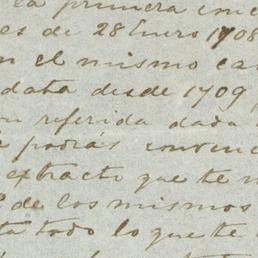 la primera
es de 28 Enero 1708
en el mismo ca
data desde 1709,
referida dada
podrás convenc
extracto que te
de los mismos
ta todo lo que te